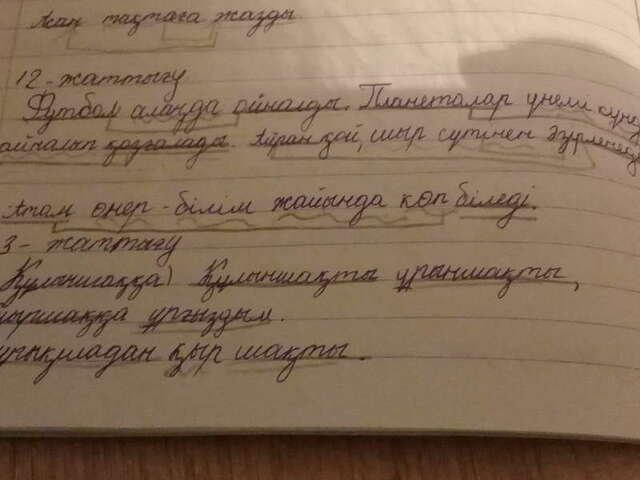 Асан тақтаға жазды
12-жаттығу
Футбол алаңда ойналды. Планеталар үнемі күнді
айналып қозғалады. Айран қой, сиыр сүтінен әзірленеді
Атам өнер-білім жайында көп біледі.
3-жаттығу
Құлыншаққа) Құлыншақты ұрыншақты,
ыршаққа ұрғыздым.
қыр шақты.